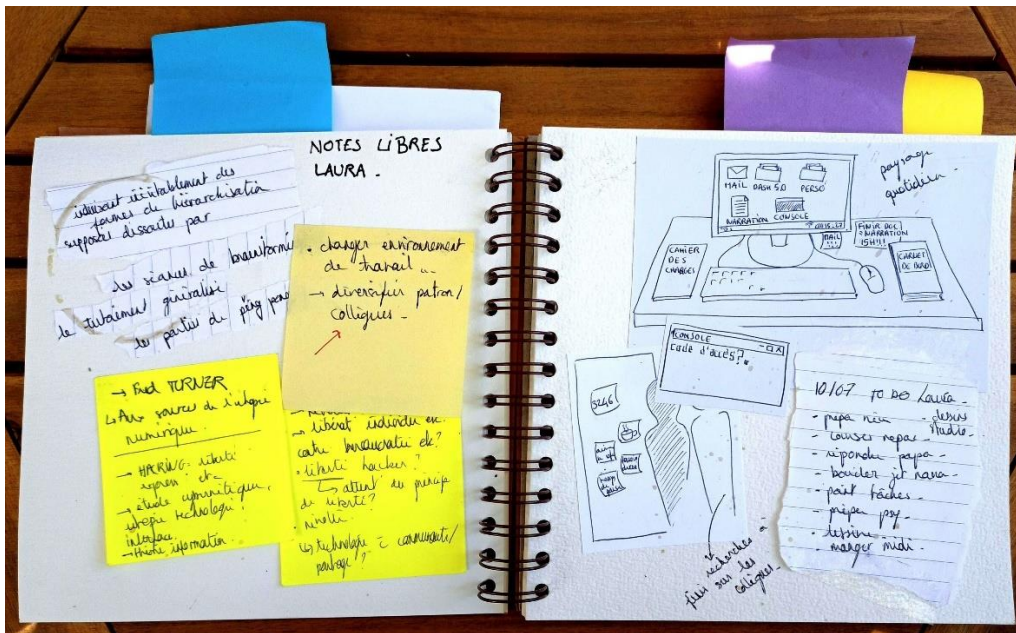 NOTES LIBRES
LAURA.
induisant inévitablement des
formes de hiérarchisation
supposées dissoutes par
des séances de
le tutoiement généralisé
les parties de ping pong
• changer environnement
de travail
→ diversifier patron/
collègues -
→ Fred TURNER
↳ Aux sources de l'utopie
numérique.
→ HACKING: liberté
→ étude cybernétique,
utopie technologie?
interface.
→ théorie information
→ libérat° individu
contre bureaucratie etc?
• liberté hacker?
↳ attent° au principe
de liberté?
↳ technologie = communauté/
partage?
MAIL DASH 5.0 PERSO
NARRATION CONSOLE
paysage
quotidien.
CAHIER
DES
CHARGES
MAIL
FINIR DOC
NARRATION
15H!!!
CARNET
DE BORD
CONSOLE
Code d'accès?
3246
recherches
sur les
collègues -
10/07 TO DO Laura
- dessin
studio -
• courses repas -
• répondre papa -
• boucler jet nana -
• point tâches -
• prépa psy -
• lessive
• manger midi -